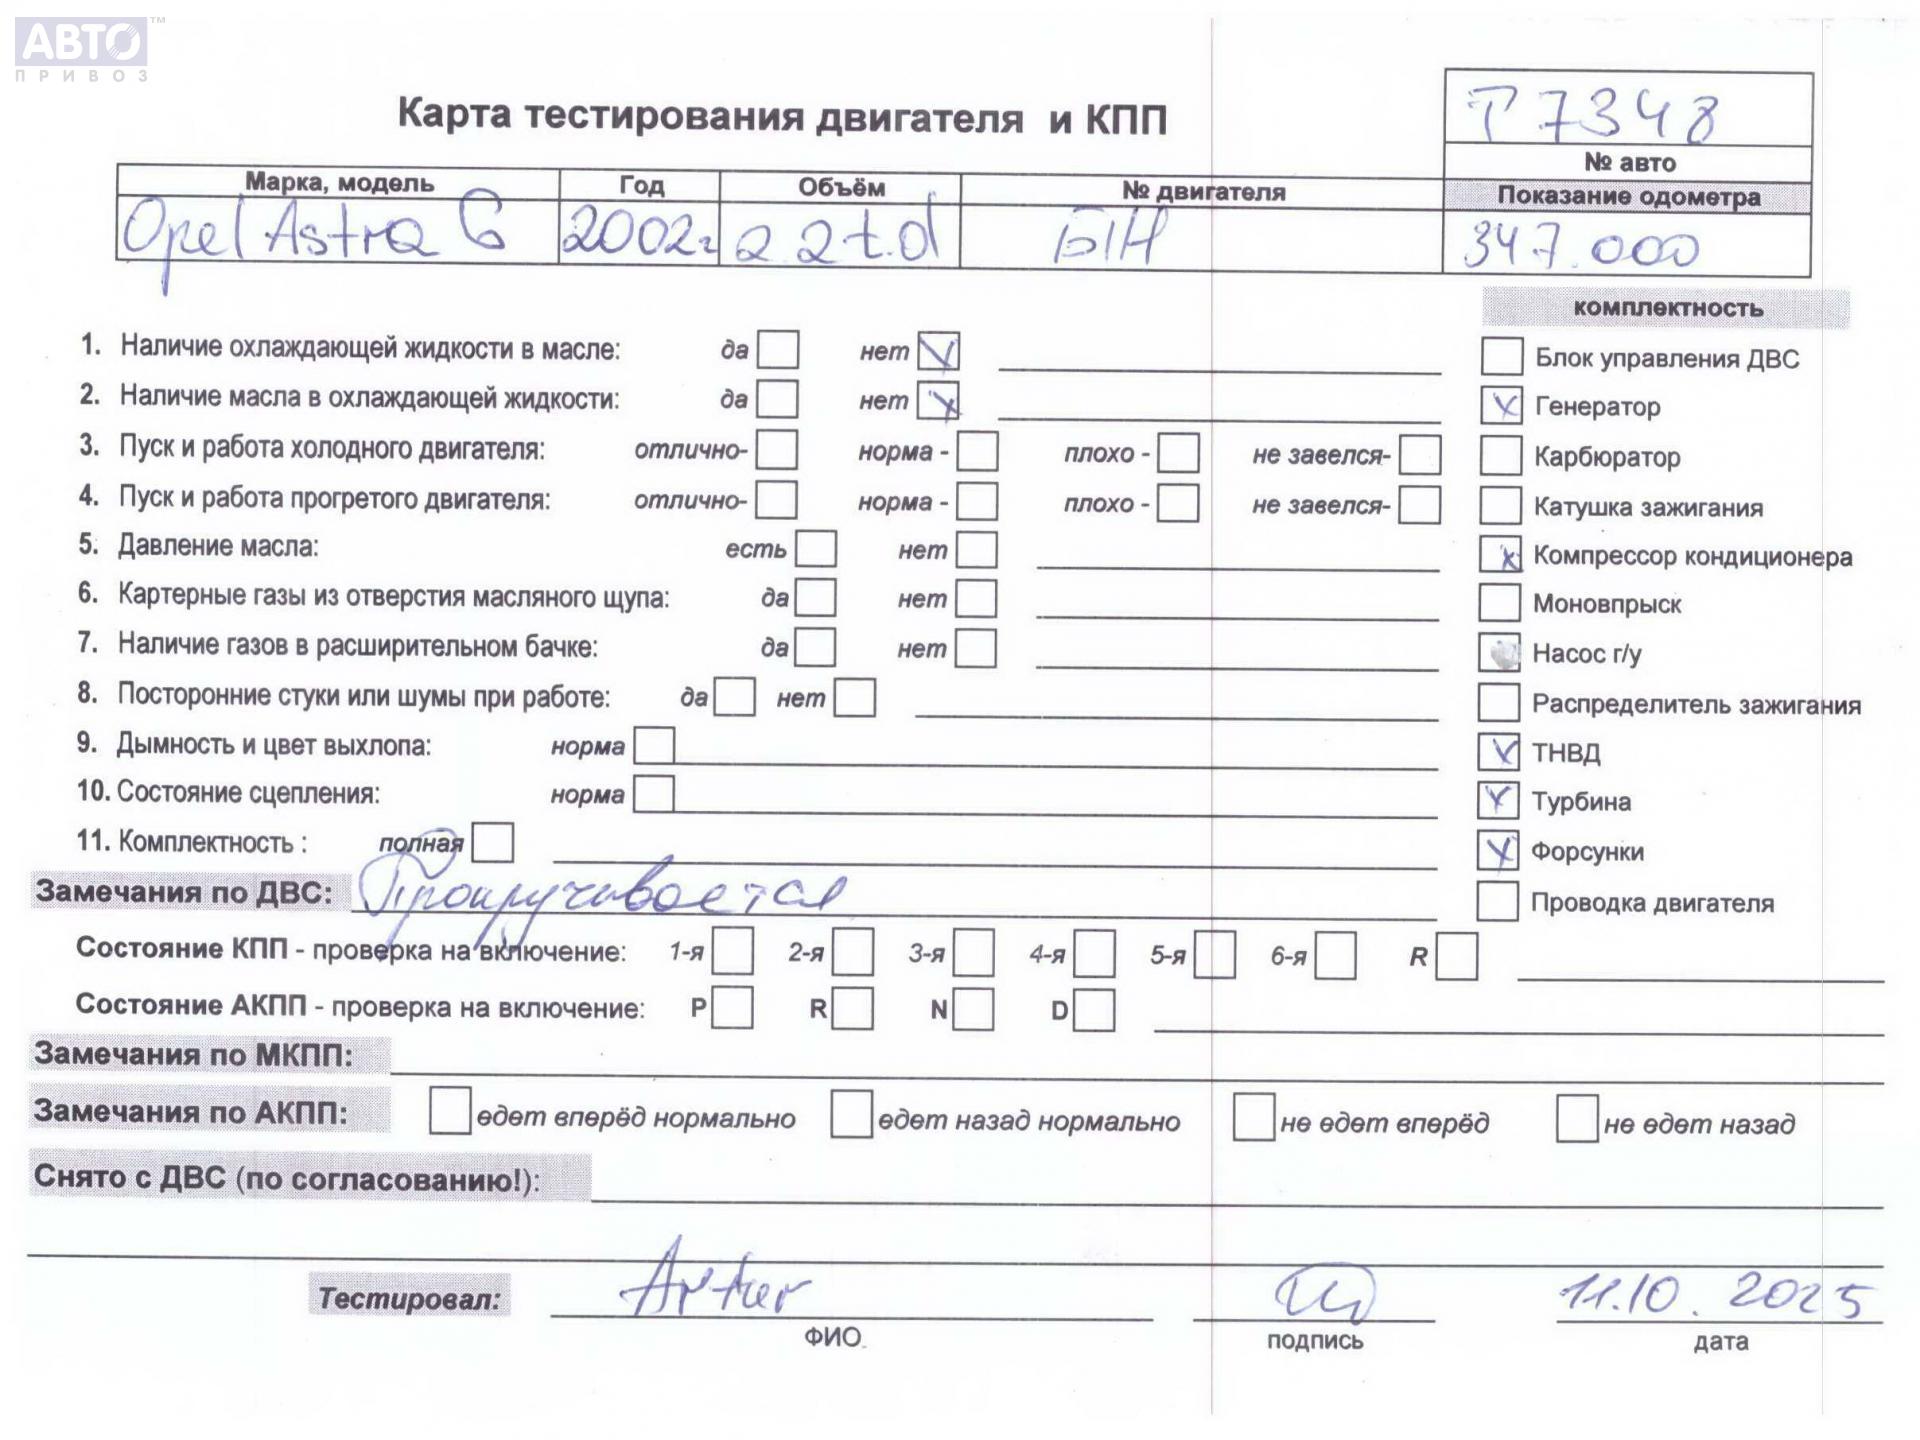 АВТО™
ПРИВОЗ
Карта тестирования двигателя и КПП
Т 7348
№ авто
Марка, модель Год Объём № двигателя Показание одометра
Opel Astra G 2002г 2.2 t.d Б/Н 347.000
комплектность
1. Наличие охлаждающей жидкости в масле: да нет
Блок управления ДВС
2. Наличие масла в охлаждающей жидкости: да нет
Генератор
3. Пуск и работа холодного двигателя: отлично- норма - плохо - не завелся-
Карбюратор
4. Пуск и работа прогретого двигателя: отлично- норма - плохо - не завелся-
Катушка зажигания
5. Давление масла: есть нет
Компрессор кондиционера
6. Картерные газы из отверстия масляного щупа: да нет
Моновпрыск
7. Наличие газов в расширительном бачке: да нет
Насос г/у
8. Посторонние стуки или шумы при работе: да нет
Распределитель зажигания
9. Дымность и цвет выхлопа: норма
ТНВД
10. Состояние сцепления: норма
Турбина
11. Комплектность : полная
Форсунки
Замечания по ДВС: Прокручивается
Проводка двигателя
Состояние КПП - проверка на включение: 1-я 2-я 3-я 4-я 5-я 6-я R
Состояние АКПП - проверка на включение: P R N D
Замечания по МКПП:
Замечания по АКПП: едет вперёд нормально едет назад нормально не едет вперёд не едет назад
Снято с ДВС (по согласованию!):
Тестировал: Artur 11.10.2025
ФИО. подпись дата